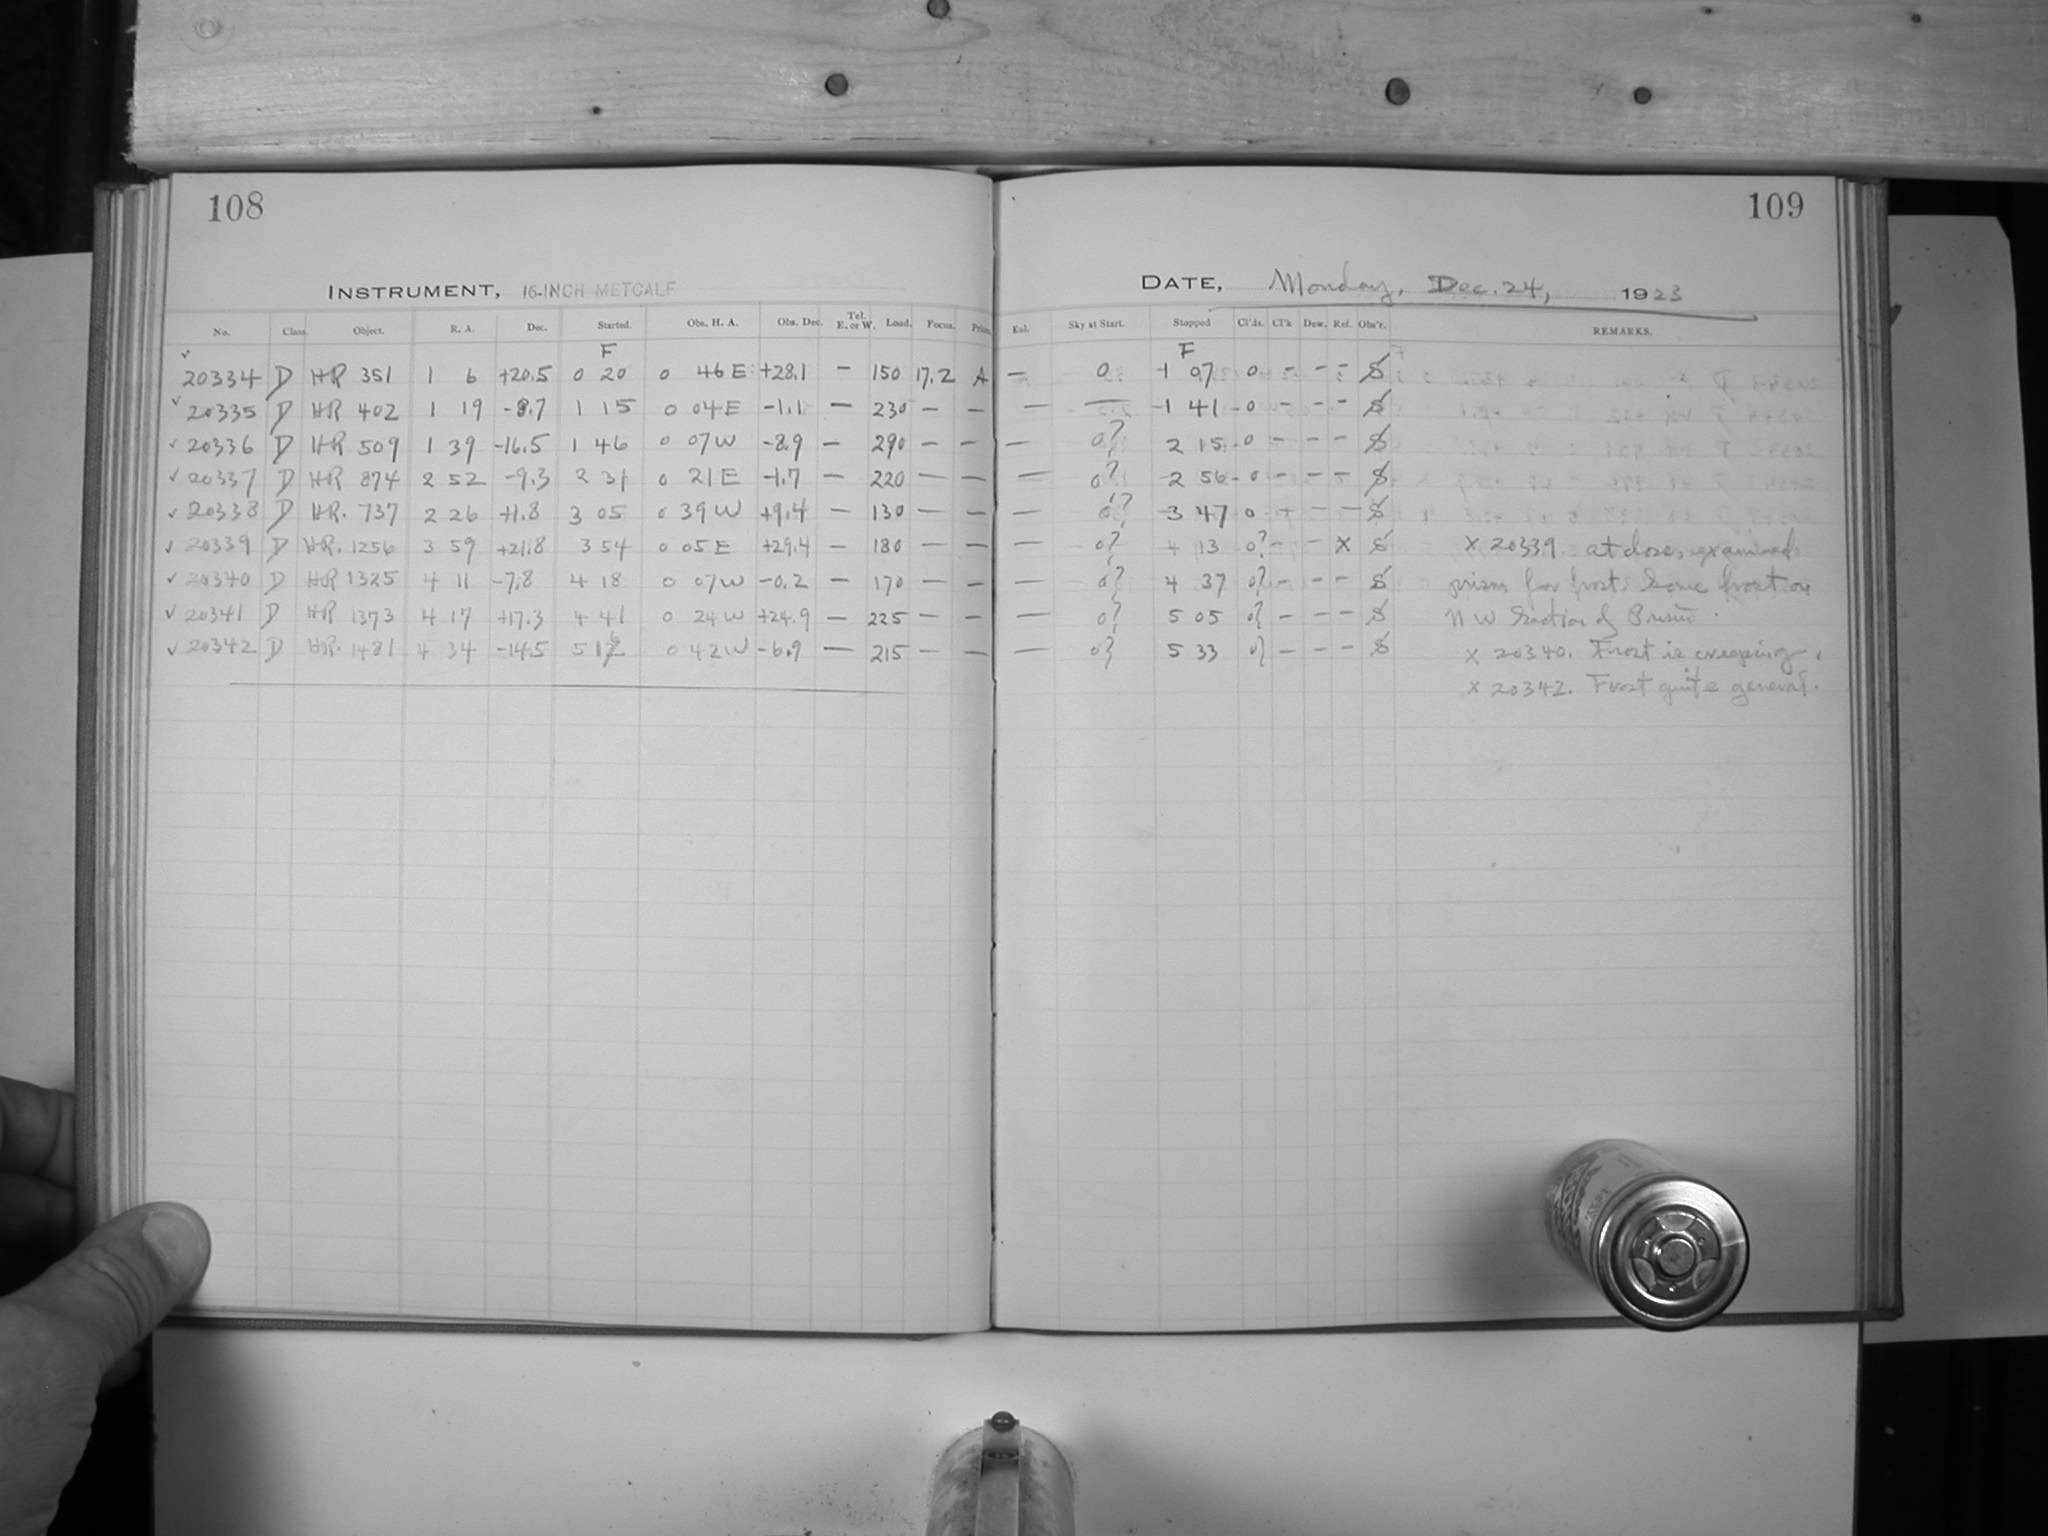 108
109
INSTRUMENT, 16-INCH METCALF
DATE, Monday, Dec. 24, 1923
No. Class. Object. R. A. Dec. Started. Obs. H. A. Obs. Dec. Tel. E. or W. Load. Focus. Prism Eal. Sky at Start. Stopped Cl'ds. Cl'k Dew. Ref. Obs'r. REMARKS.
F F
✓ 20334 D HR 351 1 6 +20.5 0 20 0 46 E +28.1 — 150 17.2 A — 0 1 07 0 - - - S
✓ 20335 D HR 402 1 19 -8.7 1 15 0 04 E -1.1 — 230 — — — — 1 41 0 - - - S
✓ 20336 D HR 509 1 39 -16.5 1 46 0 07 W -8.9 — 290 — — — 0? 2 15 0 - - - S
✓ 20337 D HR 874 2 52 -9.3 2 31 0 21 E -1.7 — 220 — — — 0? 2 56 0 - - - S
✓ 20338 D HR. 737 2 26 +1.8 3 05 0 39 W +9.4 — 130 — — — 0? 3 47 0 + - - S
✓ 20339 D HR. 1256 3 59 +21.8 3 54 0 05 E +29.4 — 180 — — — 0? 4 13 0? - - X S X 20339. at close, examined
✓ 20340 D HR 1325 4 11 -7.8 4 18 0 07 W -0.2 — 170 — — — 0? 4 37 0? - - - S prism for frost. Some frost on
✓ 20341 D HR 1373 4 17 +17.3 4 41 0 24 W +24.9 — 225 — — — 0? 5 05 0? - - - S N W Section of Prism.
✓ 20342 D HR. 1481 4 34 -14.5 5 16 0 42 W -6.9 — 215 — — — 0? 5 33 0? - - - S X 20340. Frost is creeping.
X 20342. Frost quite general.